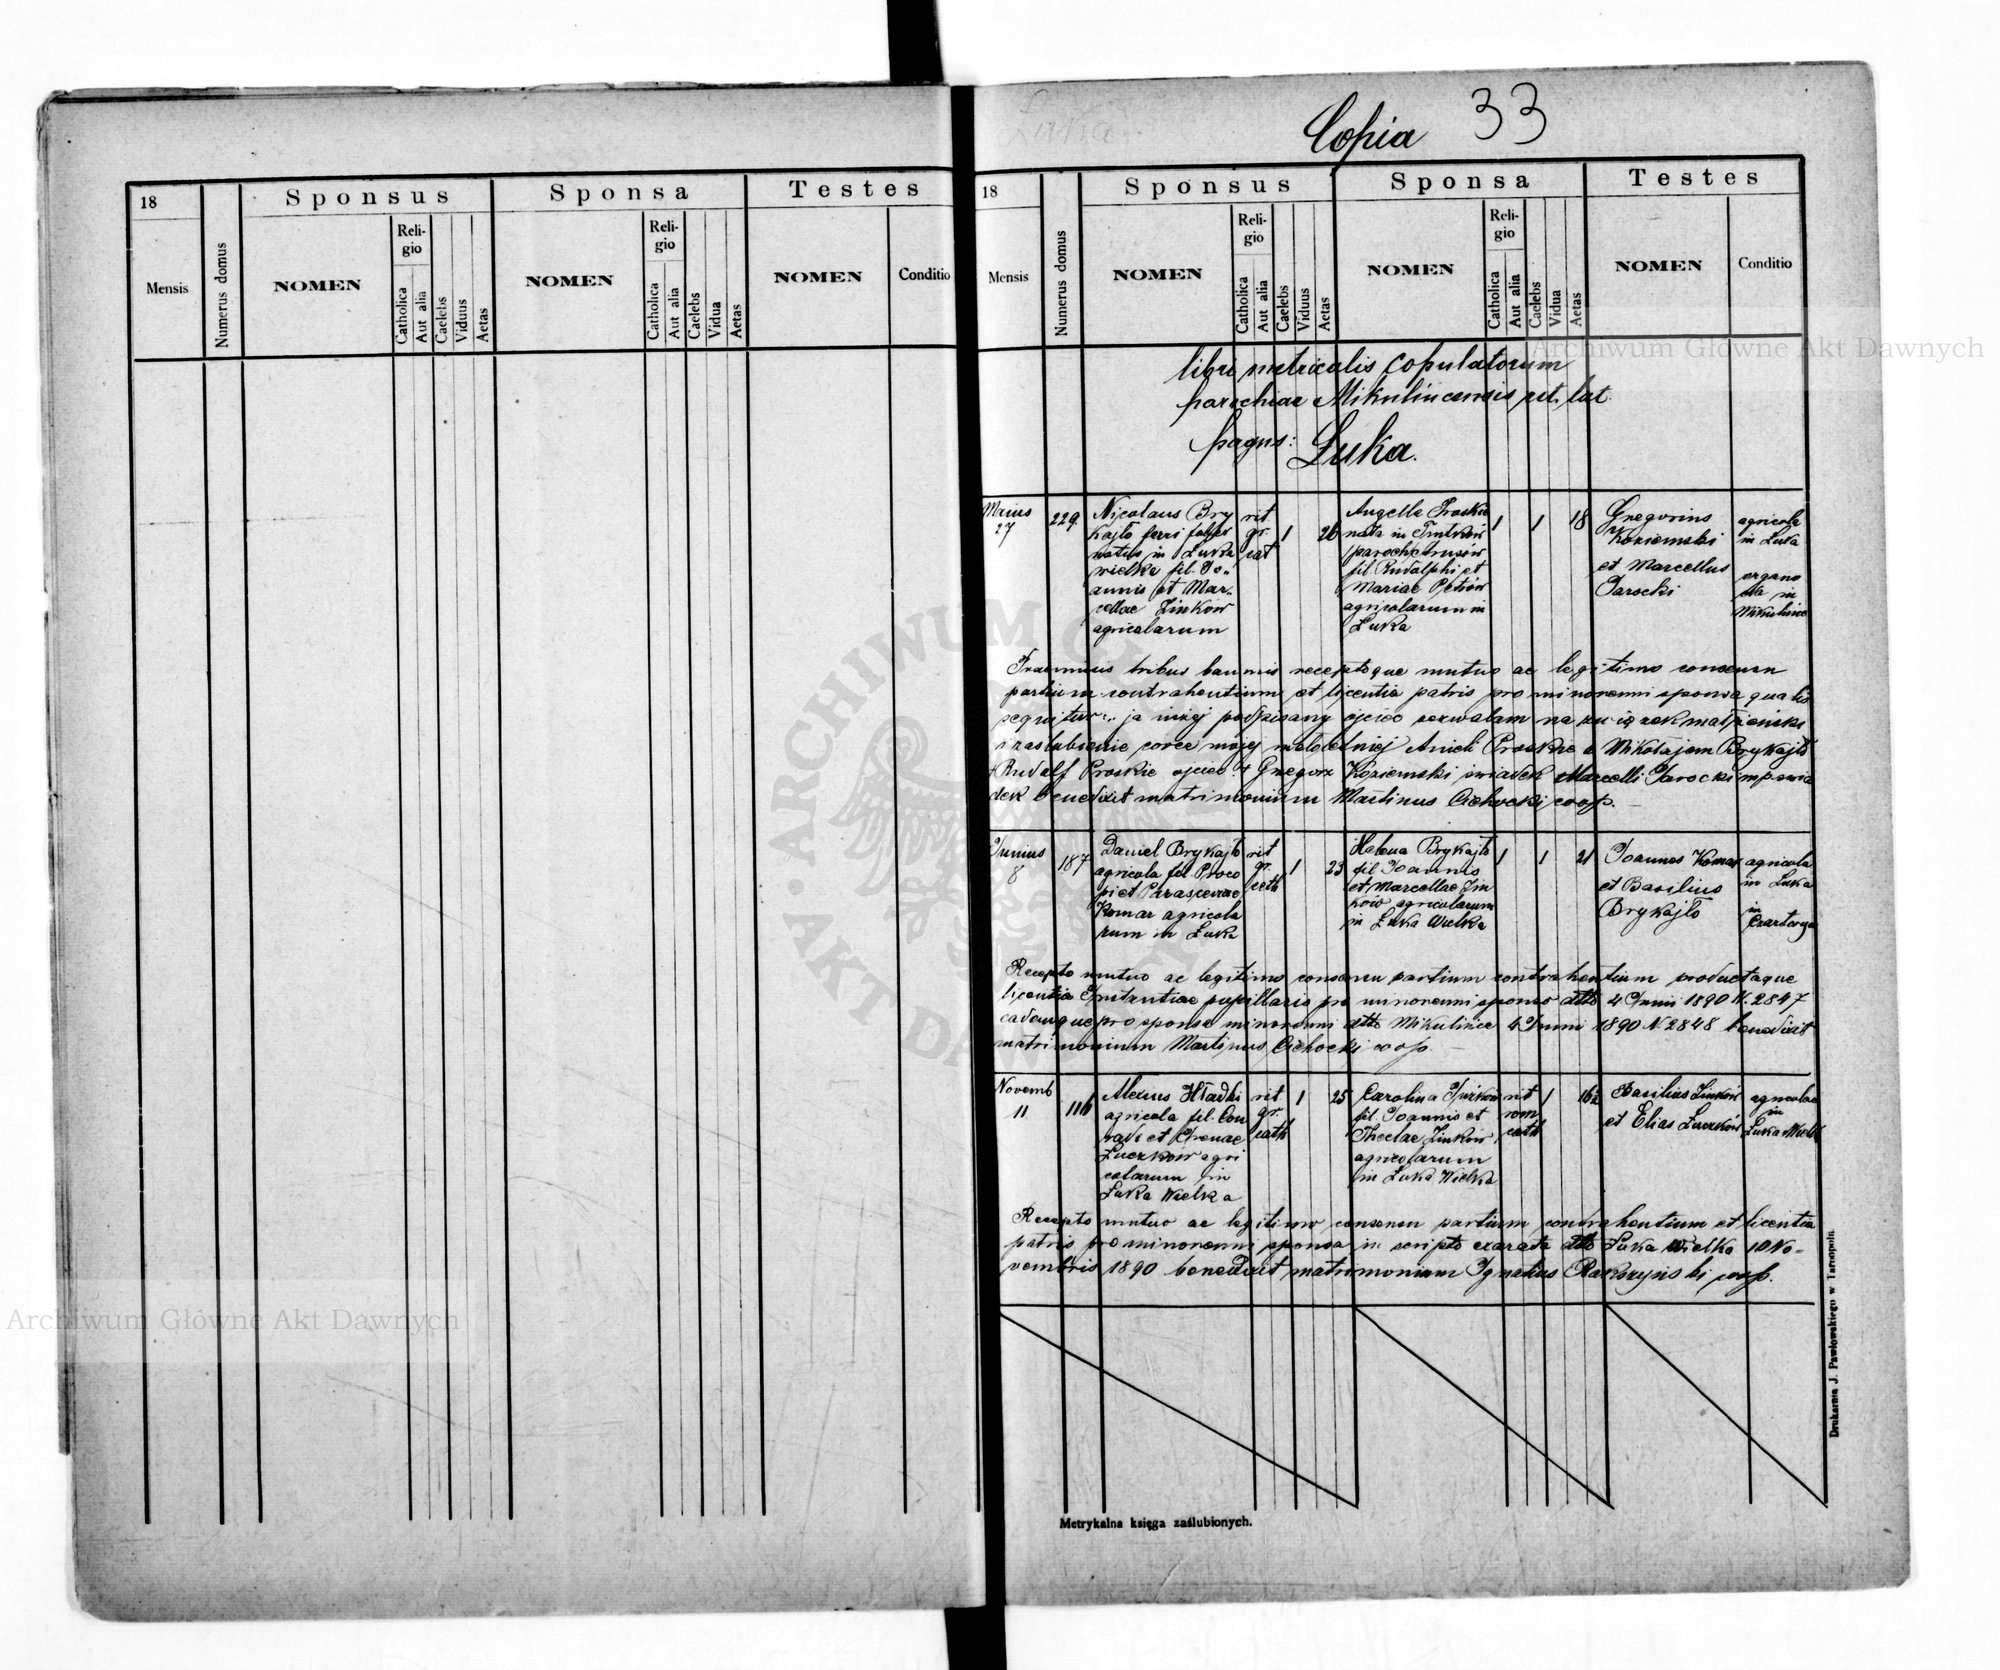 18
Mensis
Numerus domus
Sponsus
NOMEN
Religio
Catholica
Aut alia
Caelebs
Viduus
Aetas
Sponsa
NOMEN
Religio
Catholica
Aut alia
Caelebs
Vidua
Aetas
Testes
NOMEN
Conditio
Luka
Copia 33
18
Mensis
Numerus domus
Sponsus
NOMEN
Religio
Catholica
Aut alia
Caelebs
Viduus
Aetas
Sponsa
NOMEN
Religio
Catholica
Aut alia
Caelebs
Vidua
Aetas
Testes
NOMEN
Conditio
libri metricalis copulatorum
parochiae Mikulincensis rit. lat.
pagus: Łuka.
Maius
27
229
Nicolaus Bry
kajło
natus in Łuka
wielka fil. Jo„
annis et Mar„
cellae Zinków
agricolarum
rit
gr.
cat
1
26
Angella Proskie
nata in
paroch
fil. Rudolphi et
Mariae Petrów
agricolarum in
Łuka
1
1
18
Gregorius
Koziemski
et Marcellus
Jarocki
agricola
in Łuka
organo
sta in
Mikulince
Praemissis tribus bannis receptoque mutuo ac legitimo consensu
partium contrahentium et licentia patris pro minorenni sponsa qualis
sequitur: ja niżej podpisany ojciec zezwalam na związek małżeński
i zaślubienie córce mojej małoletniej Anieli Proskie z Mikołajem Brykajło
+ Rudolf Proskie ojciec + Grzegorz Koziemski świadek Marcelli Jarocki mp świa
dek benedixit matrimonium Martinus Cichocki coop.
Junius
8
187
Daniel Brykajło
agricola fil. Proco
pi et Parascevae
Komar agricola
rum in Łuka
rit
gr.
cath
1
23
Helena Brykajło
fil Joannis
et Marcellae Zin
ków agricolarum
in Łuka Wielka
1
1
21
Joannes Komar
et Basilius
Brykajło
agricola
in Łuka
in
Recepto mutuo ac legitimo consensu partium contrahentium productaque
licentia Instantiae pupillaris pro minorenni sponso ddto 4 Junii 1890 N. 2847
eademque pro sponsa minorenni ddto Mikulińce 4 Junii 1890 N. 2848 benedixit
matrimonium Martinus Cichocki coop.
Novemb
11
116
Alexius Hładki
agricola fil. Con
radi et Irenae
Łuczków agri
colarum in
Łuka Wielka
rit
gr.
cath
1
25
Carolina
fil. Joannis et
Theclae Zinków
agricolarum
in Łuka Wielka
rit
rom
cath
1
16½
Basilius Zinków
et Elias Łuczków
agricolae
in
Łuka Wielka
Recepto mutuo ac legitimo consensu partium contrahentium et licentia
patris pro minorenni sponsa in scripto exarata ddto Łuka Wielka 10 No-
vembris 1890 benedixit matrimonium Ignatius coop.
Metrykalna księga zaślubionych.
Drukarnia J. Pawłowskiego w Tarnopolu.
Archiwum Główne Akt Dawnych
Archiwum Główne Akt Dawnych